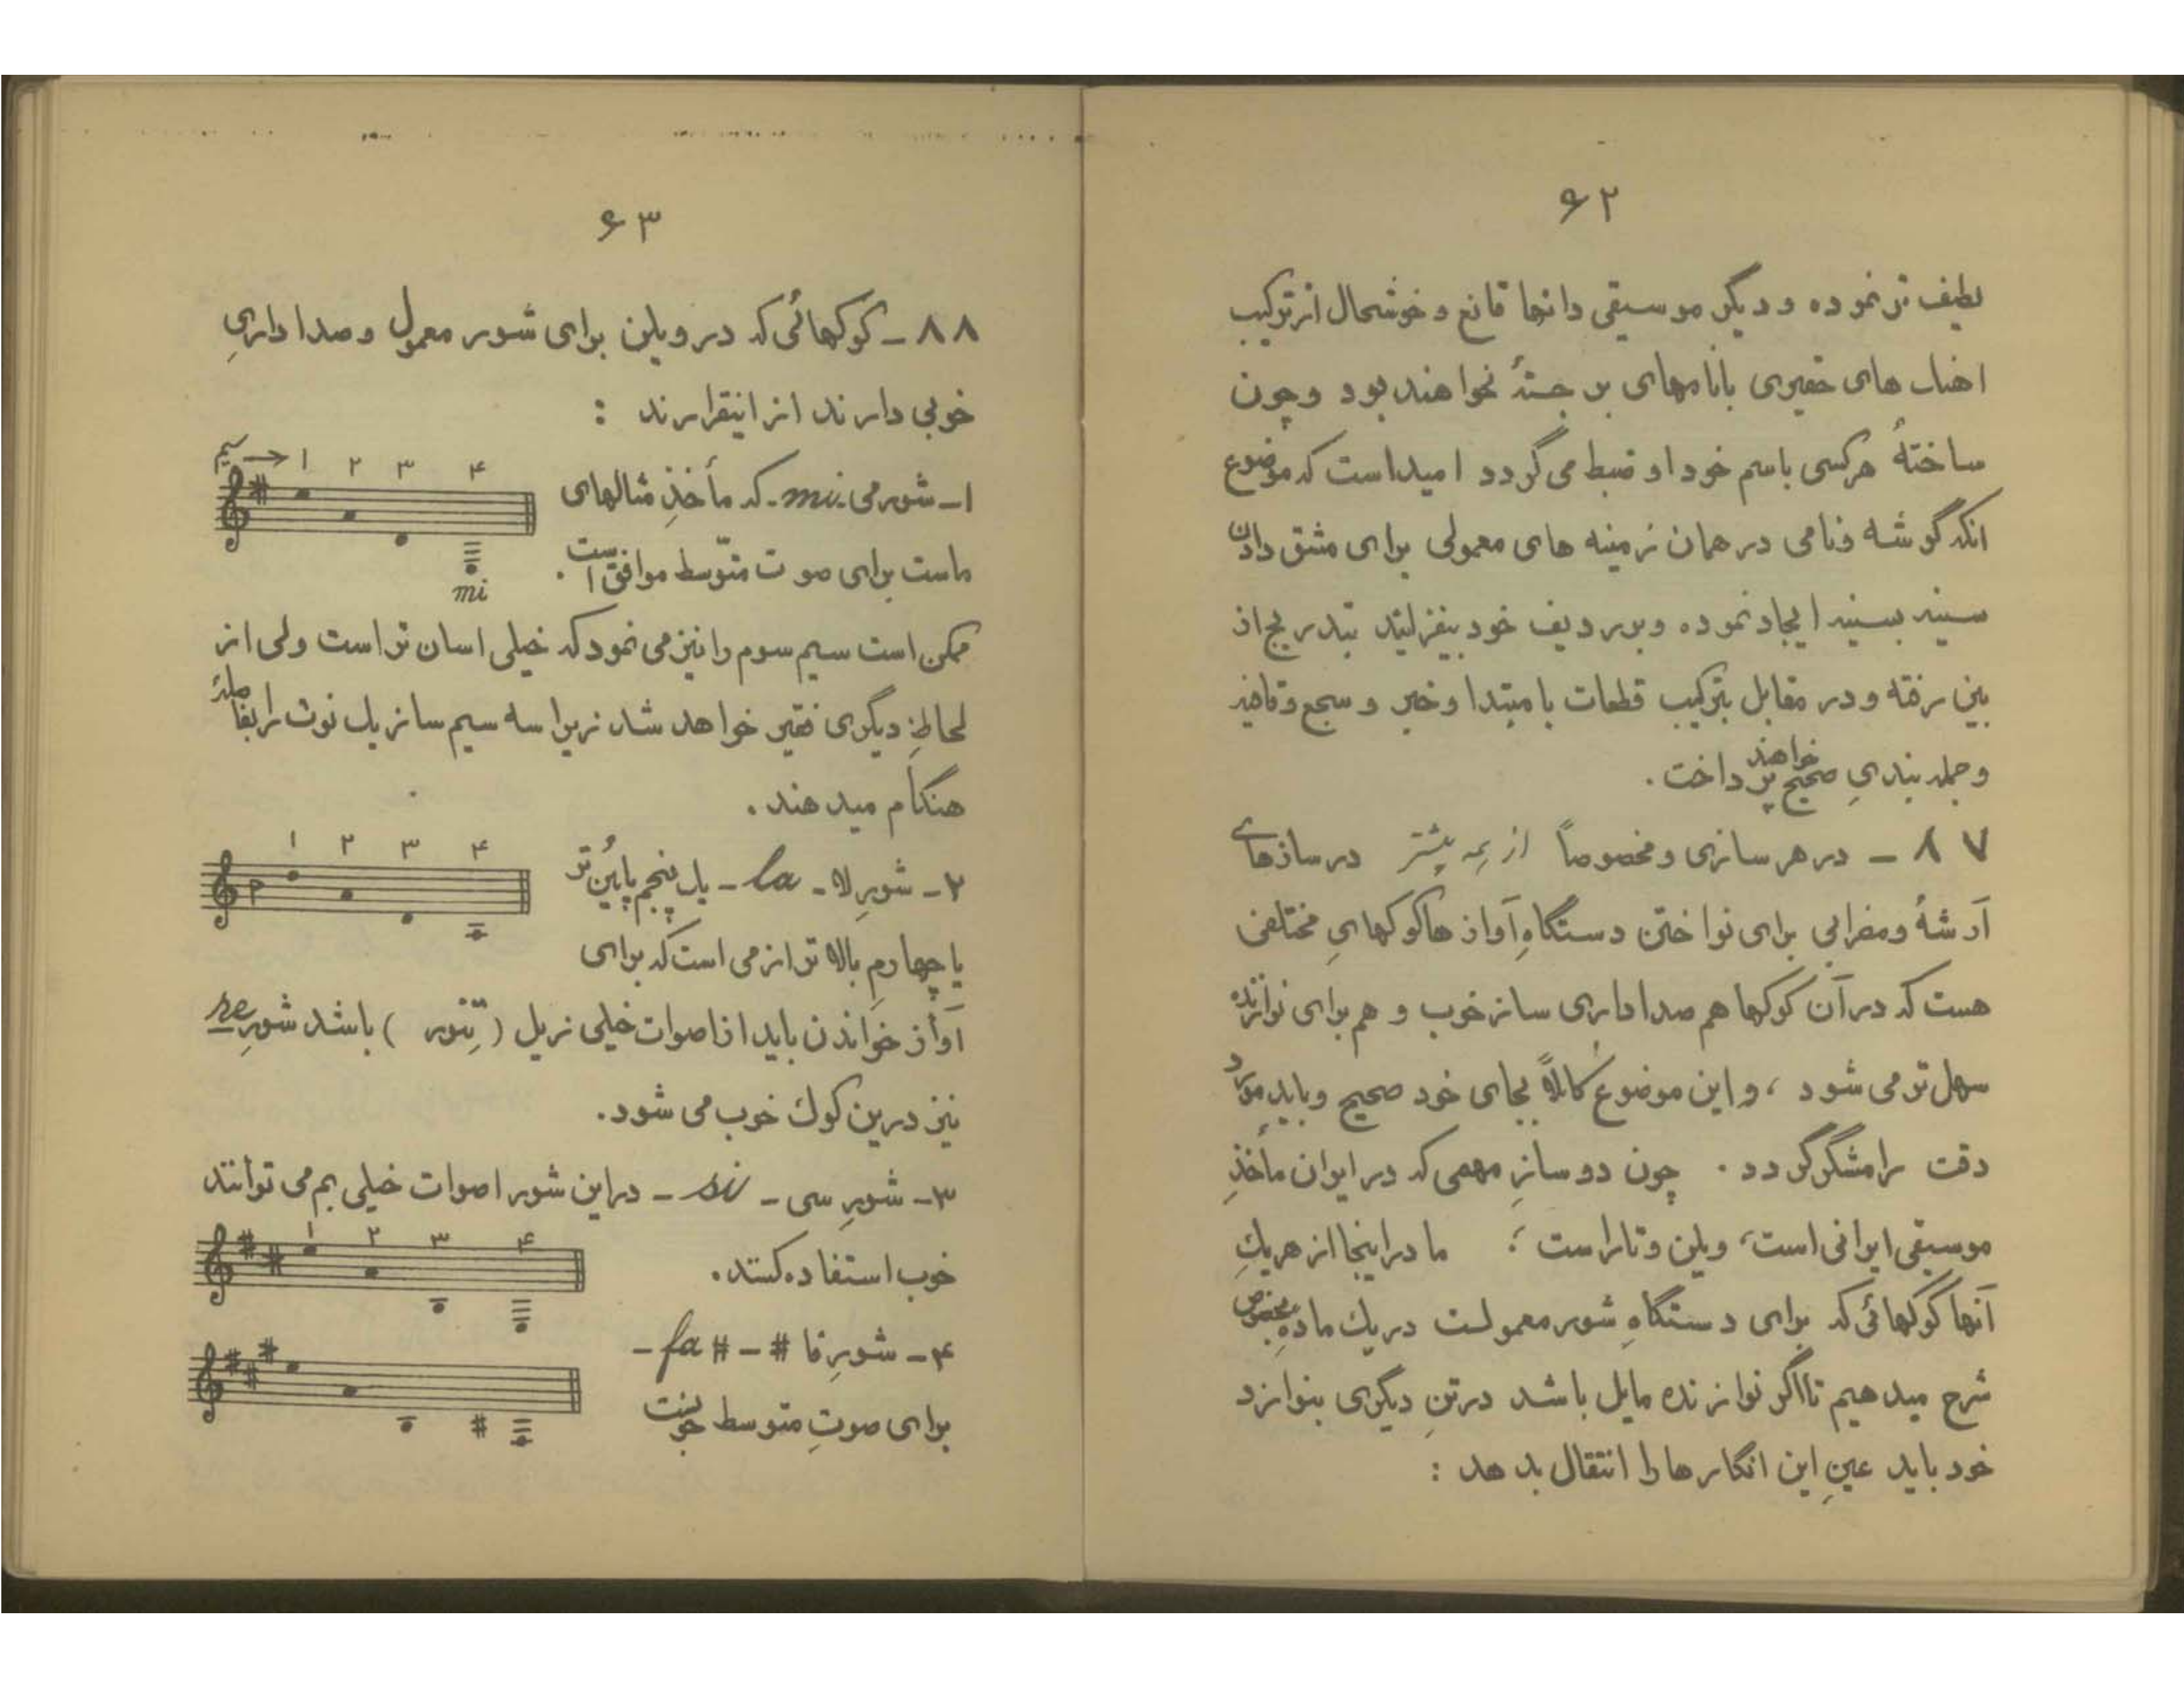 ۶۲
لطیف تر نموده و دیگر موسیقی دانها قانع و خوشحال از ترکیب
اهنك های حقیری بانامهای بر جستهٔ نخواهند بود و چون
ساختهٔ هرکسی باسم خود او ضبط می گردد امید است که موضوع
انکه گوشه و نامی در همان زمینه های معمولی برای مشق دادن
سینه بسینه ایجاد نموده و بردیف خود بیفزایند بتدریج از
بین رفته و در مقابل بترکیب قطعات با مبتدا و خبر و سجع و قافیه
و جمله بندیِ صحیح خواهند پرداخت .
۸۷ – در هر سازی و مخصوصاً از همه بیشتر در سازهای
آرشهٔ و مضرابی برای نواختن دستگاهِ آوازها کوکهایِ مختلفی
هست که در آن کوکها هم صدا داری ساز خوب و هم برای نوازنده
سهل تر می شود ، و این موضوع کاملاً بجای خود صحیح و باید مورد
دقت رامشگر گردد . چون دو سازِ مهمی که در ایران مأخذِ
موسیقی ایرانی است، ویلن و تار است ؛ ما در اینجا از هر یكِ
آنها کوکهائی که برای دستگاهِ شور معمولست در یك ماده مخصوص
شرح میدهیم تا اگر نوازنده مایل باشد در تنِ دیگری بنوازد
خود باید عینِ این انگارها را انتقال بدهد :
۶۳
۸۸ – کوکهائی که در ویلن برای شور معمول و صدا داریِ
خوبی دارند از اینقرارند :
سیم → ۱ ۲ ۳ ۴
۱ – شور می mi - که مأخذِ مثالهای
ماست برای صوت متوّسط موافق است .
mi
ممکن است سیم سوم را نیز می نمود که خیلی اسان تر است ولی از
لحاظِ دیگری فقیر خواهد شد زیرا سه سیم ساز یك نوت را بفاصلهٔ
هنگام میدهند .
۱ ۲ ۳ ۴
۲ – شورِ لا – la – یك پنجم پایین تر
یا چهارمِ بالا تر از می است که برای
آواز خواندن باید از اصوات خیلی زیل ( تِنور ) باشد شورِ re
نیز درین کوك خوب می شود.
۳ – شورِ سی – si – در این شور اصوات خیلی بم می توانند
۱ ۲ ۳ ۴
خوب استفاده کنند.
۴ – شورِ فا # – fa # –
برای صوتِ متوسط خوبست